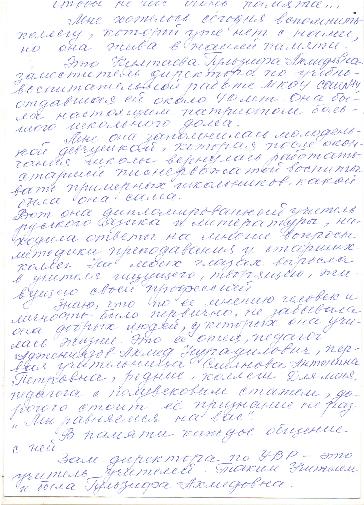 Мне хотелось сегодня вспомнить
коллегу, которой уже нет с нами,
но она жива в нашей памяти.
Это Гульзифа Ахмедовна
заместитель директора по учебно-
воспитательной работе МКОУ СОШ
отдавшая ей около 40 лет. Она бы-
ла настоящим патриотом боль-
шого школьного дела.
Мне она запомнилась молодень-
кой девушкой, которая после окон-
чания школы вернулась работать
старшей пионервожатой воспиты-
вать примерных школьников, какой
была она сама.
Вот она дипломированный учитель
русского языка и литературы, на-
ходила ответы на многие вопросы
методики преподавания у старших
коллег. На моих глазах выросла
в учителя ищущего, творящего, жи-
вущего своей профессией.
Знаю, что по её мнению человек и
личность было первично, не забывала
она добрых людей, у которых она учи-
лась жизни. Это её отец, педагог
Ахмед, пер-
вая учительница Антонина
Петровна, родные, коллеги. Для меня,
педагога с полувековым стажем, до-
рогого стоит её признание не раз
"Мы равняемся на вас".
В памяти каждое общение
с ней.
Зам. директора по УВР - это
учитель учителей. Таким Учителем
и была Гульзифа Ахмедовна.